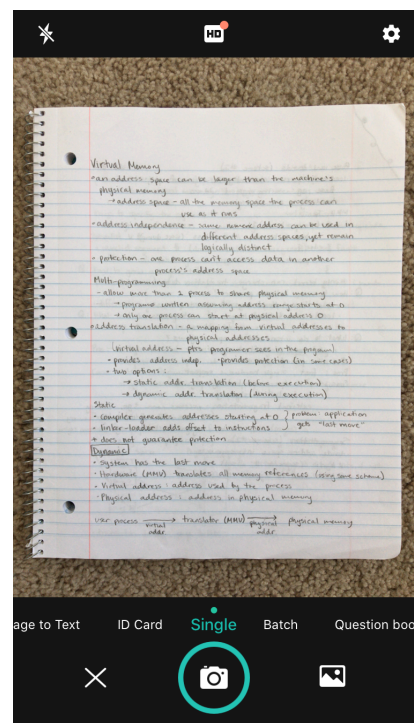 HD
Virtual Memory
• an address space can be larger than the machine's
physical memory
→ address space - all the memory space the process can
use as it runs
• address independence - same numeric address can be used in
different address spaces, yet remain
logically distinct
• protection - one process can't access data in another
process's address space
Multi-programming:
- allow more than 1 process to share physical memory
→ programs written assuming address range starts at 0
→ only one process can start at physical address 0
• address translation - a mapping from virtual addresses to
physical addresses
(virtual address - ptrs programmer sees in the program)
• provides address indep. • protection (in some cases)
• two options:
→ static addr. translation (before execution)
→ dynamic addr. translation (during execution)
Static
• compiler generates addresses starting at 0 } problem: application
• linker-loader adds offset to instructions gets "last move"
+ does not guarantee protection
Dynamic
• system has the last move
• Hardware (MMU) translates all memory references (using some scheme)
• Virtual address: address used by the process
• Physical address: address in physical memory
user process → translator (MMU) → physical memory
virtual addr physical addr
age to Text ID Card Single Batch Question boo